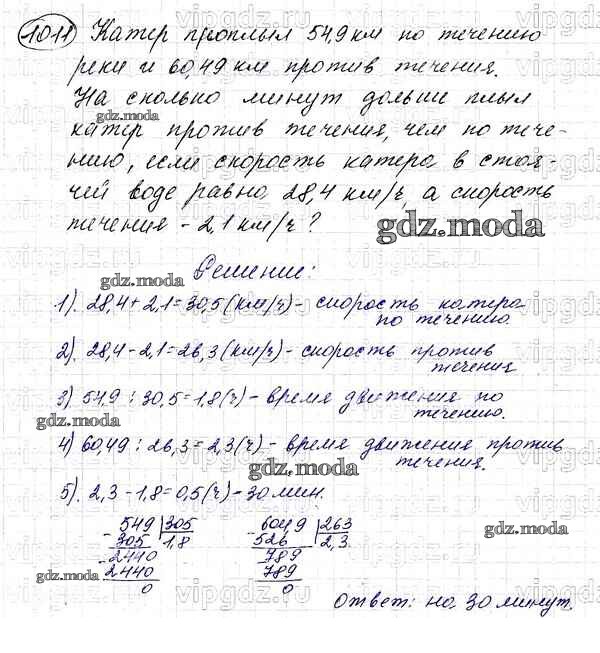 1011 Катер проплыл 54,9 км по течению
реки и 60,49 км против течения.
На сколько минут дольше плыл
катер против течения, чем по тече-
нию, если скорость катера в стоя-
чей воде равна 28,4 км/ч, а скорость
течения - 2,1 км/ч?
Решение:
1). 28,4 + 2,1 = 30,5 (км/ч) - скорость катера
по течению.
2). 28,4 - 2,1 = 26,3 (км/ч) - скорость против
течения
3) 54,9 : 30,5 = 1,8 (ч) - время движения по
течению.
4) 60,49 : 26,3 = 2,3 (ч) - время движения против
течения.
5). 2,3 - 1,8 = 0,5 (ч) - 30 мин.
549 305 6049 263
305 1,8 526 2,3
2440 789
2440 789
0 0
Ответ: на 30 минут.
gdz.moda
gdz.moda
gdz.moda
gdz.moda
gdz.moda
gdz.moda
gdz.moda
vipgdz